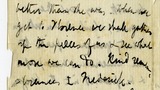 better than the was, when we
get to Florence we shall gather
up the pieces of us & see what
more we can do. Kind
Florence, I Frederick